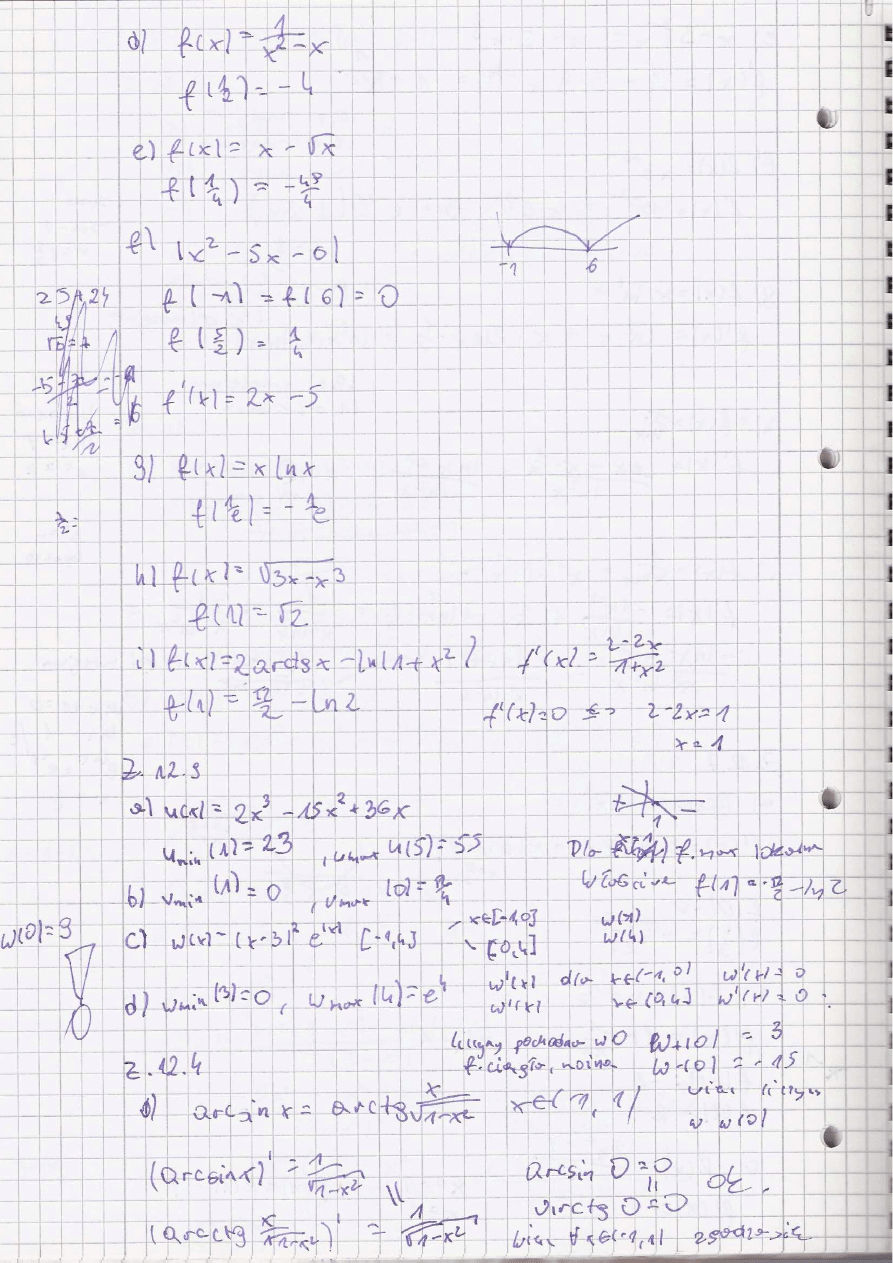 d) f(x) = 1/(x² - x)
f(1/2) = - 4
e) f(x) = x - √x
f(1/4) = -
f) |x² - 5x - 6|
-1 6
25+24
f(-1) = f(6) = 0
f(5/2) = 1/4
f'(x) = 2x - 5
g) f(x) = x ln x
f(1/e) = - 1/e
h) f(x) = √(3x - x³)
f(1) = √2
i) f(x) = 2 arctg x - ln(1 + x²) f'(x) = (2-2x)/(1+x²)
f(1) = π/2 - ln 2 f'(x)=0 ⇔ 2-2x=1
x = 1
Z. 12.3
a) u(x) = 2x³ - 15x² + 36x
+ - 1
u min (1) = 23 , u max u(5) = 55
Dla f. max lokalne
b) v min (1) = 0 , v max (0) = π/4
właściwe f(1) = π/2 - ln 2
w(0)=9
c) w(x) = (x-3)² e^|x| [-1,4]
x∈[-1,0] w(-1)
[0,4] w(4)
d) w min (3) = 0 , w max (4) = e⁴
w'(x) dla x∈(-1,0) w'(x) = 0
w'(x) x∈(0,4] w'(x) = 0
liczymy pochodna w 0 w+(0) = 3
f. ciągła, można w-(0) = -15
więc liczymy
w w(0)
Z. 12.4
b) arcsin x = arctg x/√(1-x²) x∈(-1, 1)
(arcsin x)' = 1/√(1-x²)
||
(arcctg x/√(1-x²))' = 1/√(1-x²)
arcsin 0 = 0
||
arctg 0 = 0
ok.
więc ∀x∈(-1,1) zgadza się